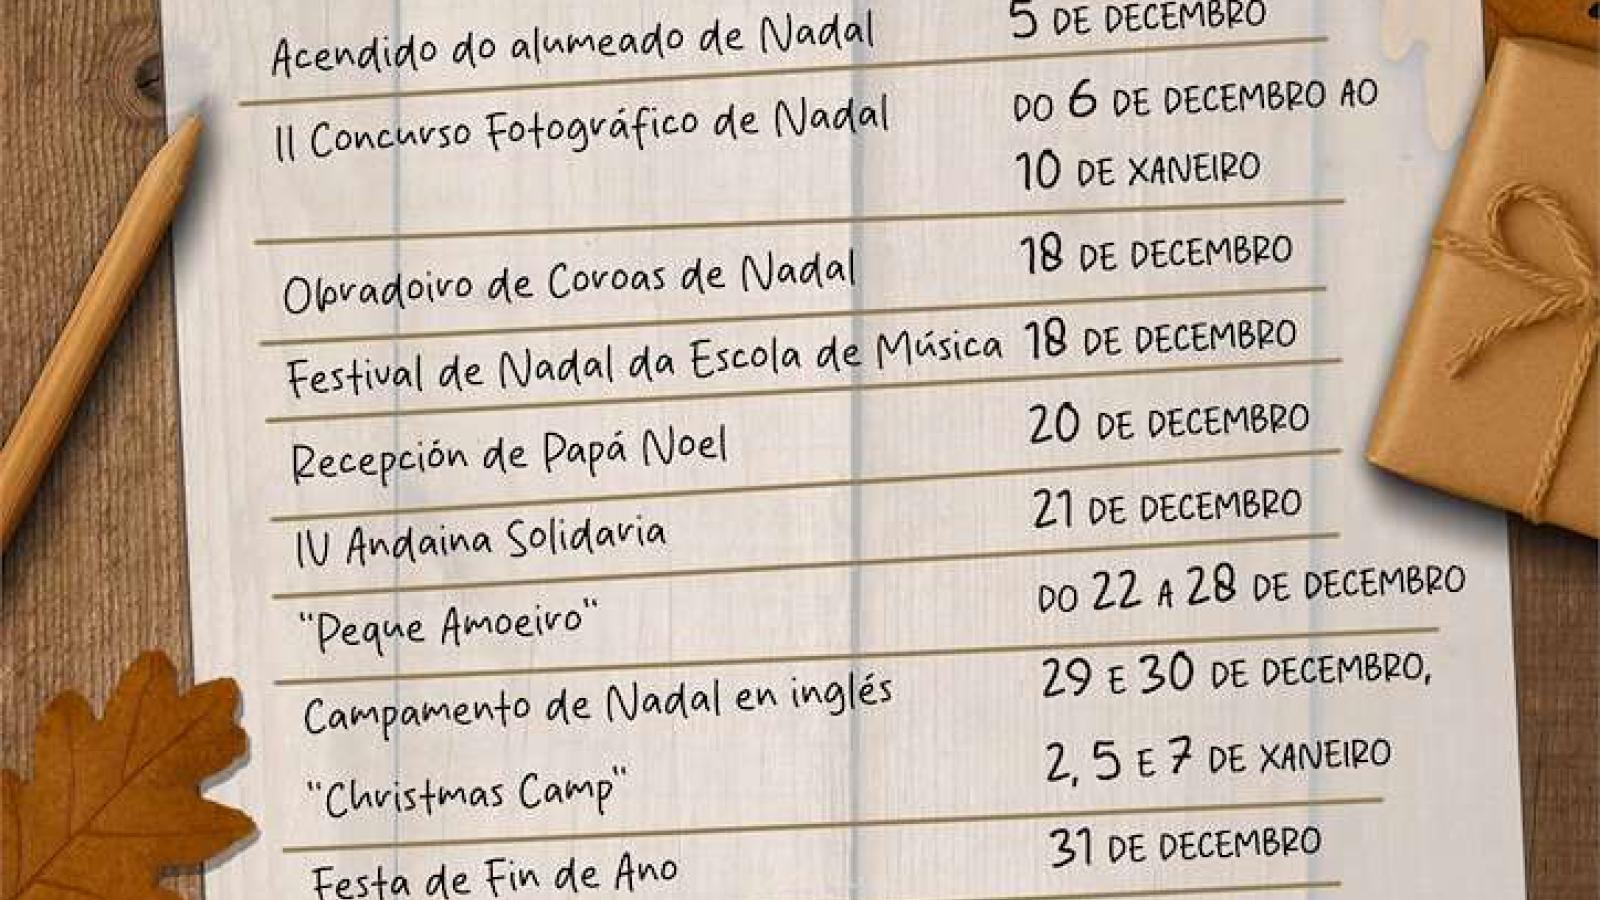 Acendido do alumeado de Nadal 5 DE DECEMBRO
II Concurso Fotográfico de Nadal DO 6 DE DECEMBRO AO
10 DE XANEIRO
Obradoiro de Coroas de Nadal 18 DE DECEMBRO
Festival de Nadal da Escola de Música 18 DE DECEMBRO
Recepción de Papá Noel 20 DE DECEMBRO
IV Andaina Solidaria 21 DE DECEMBRO
"Peque Amoeiro" DO 22 A 28 DE DECEMBRO
Campamento de Nadal en inglés 29 E 30 DE DECEMBRO,
"Christmas Camp" 2, 5 E 7 DE XANEIRO
Festa de Fin de Ano 31 DE DECEMBRO